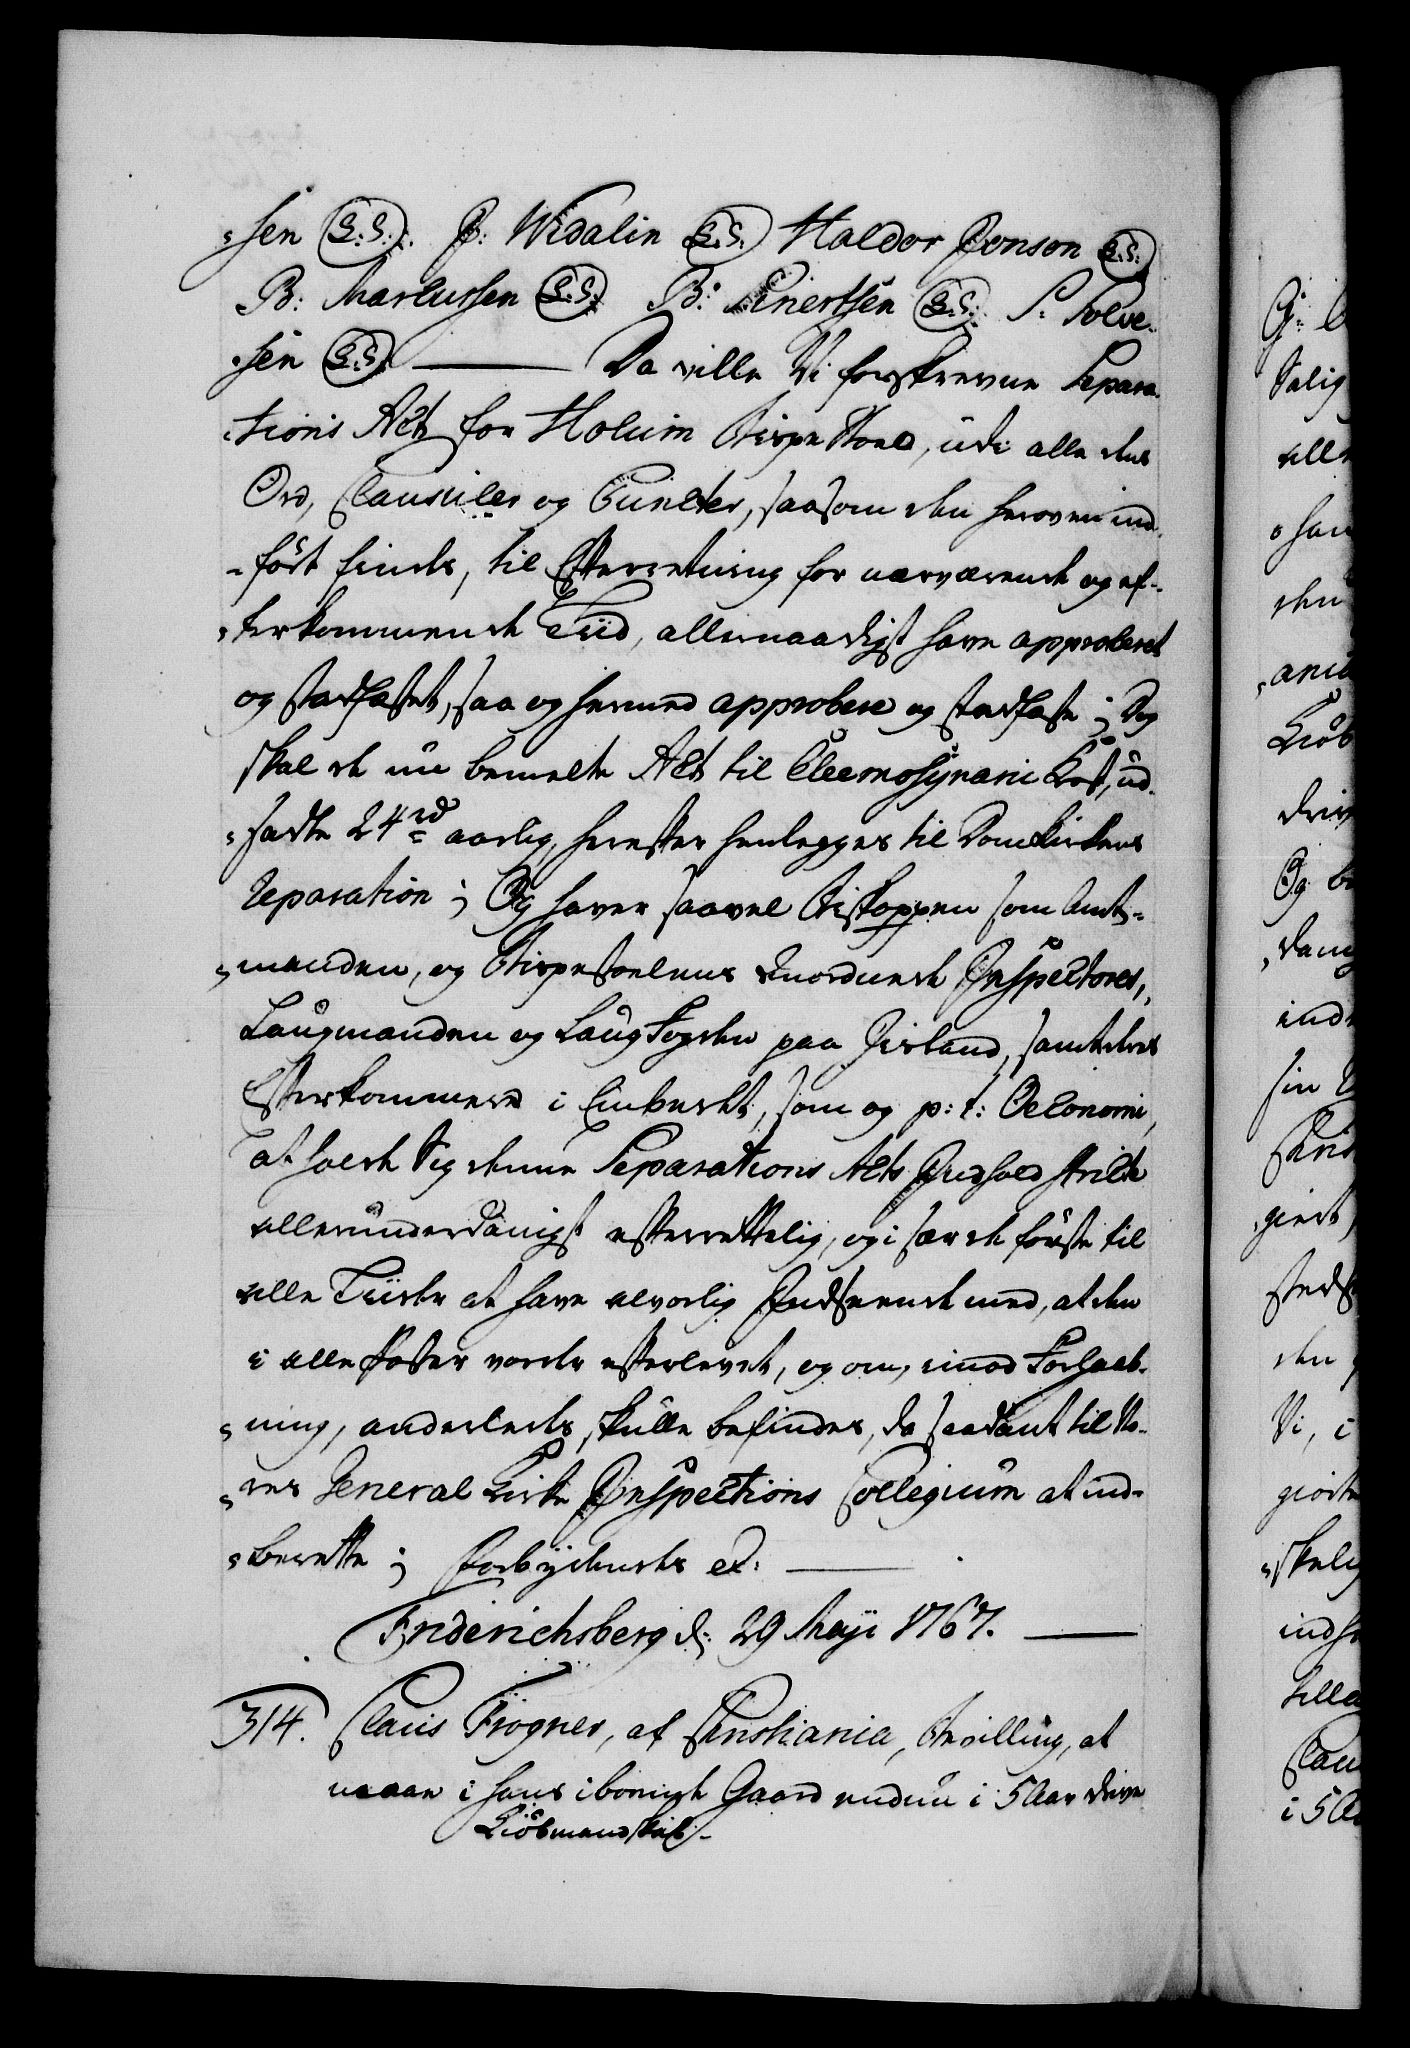 -sen (L.S.) J: Widalin (L.S.) Haldor Jonson (L.S.)
B: Marcussen (L.S.) B: Einertsen (L.S.) S: Solve-
-sen (L.S.) — Da ville Vi forskrevne Separa-
-tions Act for Holum Bispe Stoel, udi alle des
Ord, Clausuler og Puncter, saasom den heroven ind-
-ført findes, til Efterretning for nærværende og ef-
-terkommende Tiid, allernaadigst have approberet
og stadfæstet, saa og hermed approbere og stadfæste; Dog
skal de nu bemelte Act til Eleemosynarii Kost, ud-
-satte 24 rd aarlig, herefter henlegges til Domkirkens
Reparation; Og haver saavel Biskoppen som Amt-
-manden, og Bispestoelens anordnede Inspectores,
Laugmanden og LaugFogden paa Iisland, samt deres
Efterkommere i Embedet, som og p: t: Oeconomi,
at holde Sig denne Separations Acts Indhold stricte
allerunderdanigst efterrettelig, og i sær de første til
alle Tiider at have alvorlig Indseende med, at den
i alle Poster vorder efterlevet, og om, imod Forhaab-
-ning, anderledes, skulle befindes, da saadant til Vo-
-res General Kirke Inspections Collegium at ind-
-berette; Forbydendes et: —
Friderichsberg d: 29 Maji 1767. —
314. Claus Frogner, af Christiania, Bevilling, at
maae i hans iboende Gaard endnu i 5 Aar drive
Kiøbmandskab.